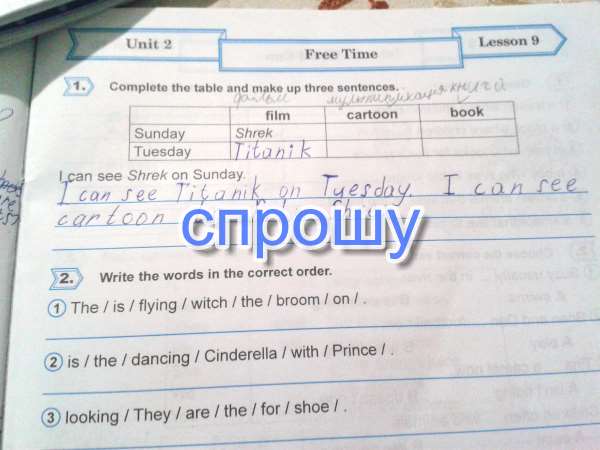 Unit 2
Free Time
Lesson 9
1. Complete the table and make up three sentences.
фильм мультипикація книга
film cartoon book
Sunday Shrek
Tuesday Titanik
I can see Shrek on Sunday.
I can see Titanik on Tyesday. I can see
cartoon
спрошу
2. Write the words in the correct order.
1 The / is / flying / witch / the / broom / on / .
2 is / the / dancing / Cinderella / with / Prince / .
3 looking / They / are / the / for / shoe / .